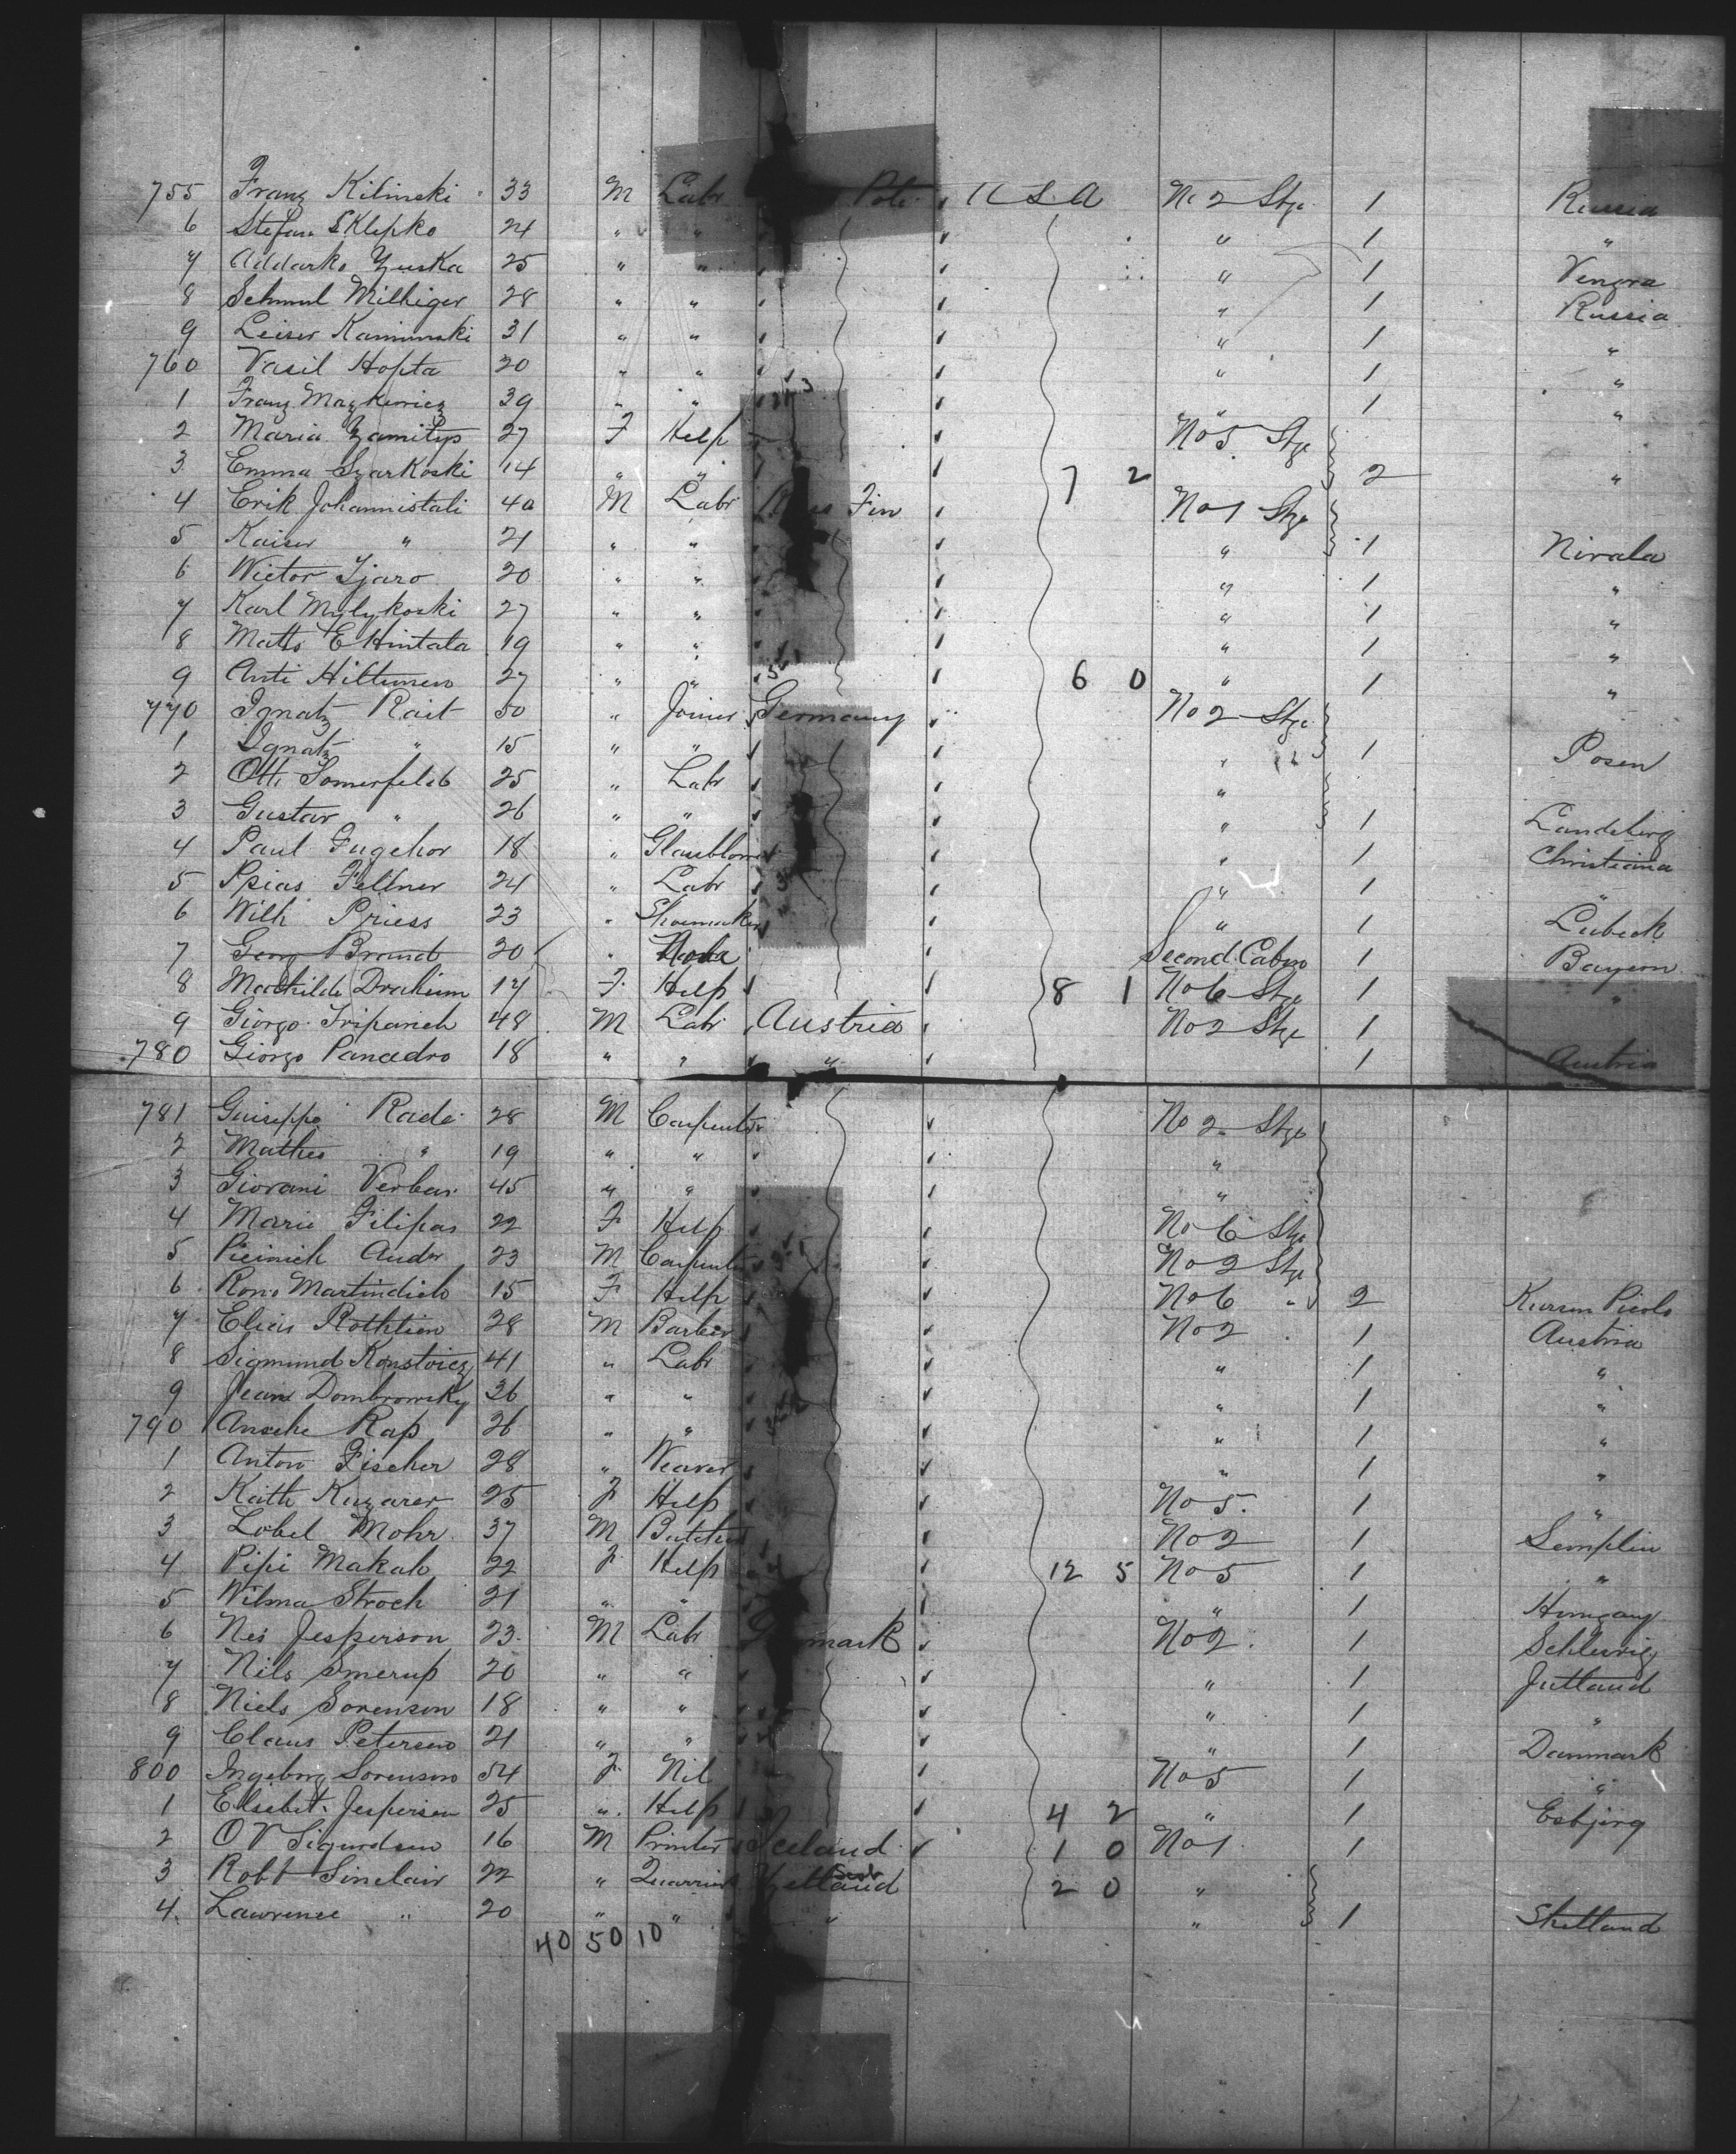 755 Franz Kilinski 33 M Labr Pole U S A No 2 Stge 1 Russia
6 Stefan Sklepko 24 " " " 1 "
7 Addarko Yuska 25 " " " 1 Vengra
8 Schmul Milhiger 28 " " " 1 Russia
9 Leiser Kaminski 31 " " " 1 "
760 Vasil Hopta 20 " " " 1 "
1 Franz Mazkewicz 39 " " " 1 "
2 Maria Zamityo 27 F Help No 5 Stge
3 Emma Szarkoski 14 " " 7 2 2 "
4 Erik Johannistali 40 M Labr Fin No 1 Stge
5 Kaiser " 21 " " " 1 Nivala
6 Wictor Ijaro 20 " " " 1 "
7 Karl Mylykoski 27 " " " 1 "
8 Matts E Hintala 19 " " " 1 "
9 Anti Hiltunen 27 " " 6 0 " 1 "
770 Ignatz Rait 50 " Joiner Germany No 2 Stge
1 Ignatz " 15 " " " 1 Posen
2 Otto Somerfeldt 25 " Labr "
3 Gustav " 26 " " " 1 Landsberg
4 Paul Fugehor 18 " Glassblower " 1 Christiana
5 Fellner 24 " Labr " 1 "
6 Wilh Priess 23 " Shoemaker " 1 Lubeck
7 Georg Brand 20 " Second Cabin 1 Bayern
8 Mathilde Draheim 17 F Help 8 1 No 6 Stge 1 "
9 Giorgo Tripanich 48 M Labr Austria No 2 Stge 1
780 Giorgo Panadro 18 " " " 1 Austria
781 Guiseppe Rade 28 M Carpenter No 2 Stge
2 Matheo " 19 " " "
3 Giovani Verbas 45 " " "
4 Marie Filipas 22 F Help No 6 Stge
5 Andor 23 M Carpenter No 2 Stge
6 Rono Martindich 15 F Help No 6 " 2 Picolo
7 Elias Rothtien 28 M Barber No 2 1 Austria
8 Sigmund Konstoicz 41 " Labr " 1 "
9 Jean Dombrowsky 36 " " " 1 "
790 Ansche Rap 26 " " " 1 "
1 Anton Fischer 28 " Weaver " 1 "
2 Kath Kuzarer 25 F Help No 5. 1 "
3 Lobel Mohr 37 M Butcher No 2 1 Semplin
4 Pipi Makab 22 F Help 12 5 No 5 1 "
5 Wilma Stroch 21 " " " 1 Hungary
6 Nes Jesperson 23 M Labr mark No 2 1 Schleswig
7 Nils Smerup 20 " " " 1 Jutland
8 Niels Sorenson 18 " " " 1 "
9 Claus Peterson 21 " " " 1 Danmark
800 Ingeborg Sorenson 54 F Nil No 5 1 "
1 Elsebet Jespersen 25 " Help 4 2 " 1 Esbjerg
2 O V Sigurdson 16 M Printer Iceland 1 0 No 1 1
3 Robt Sinclair 22 " Quarrier Zetland 2 0 "
4. Lawrence " 20 " " " " 1 Shetland
40 50 10